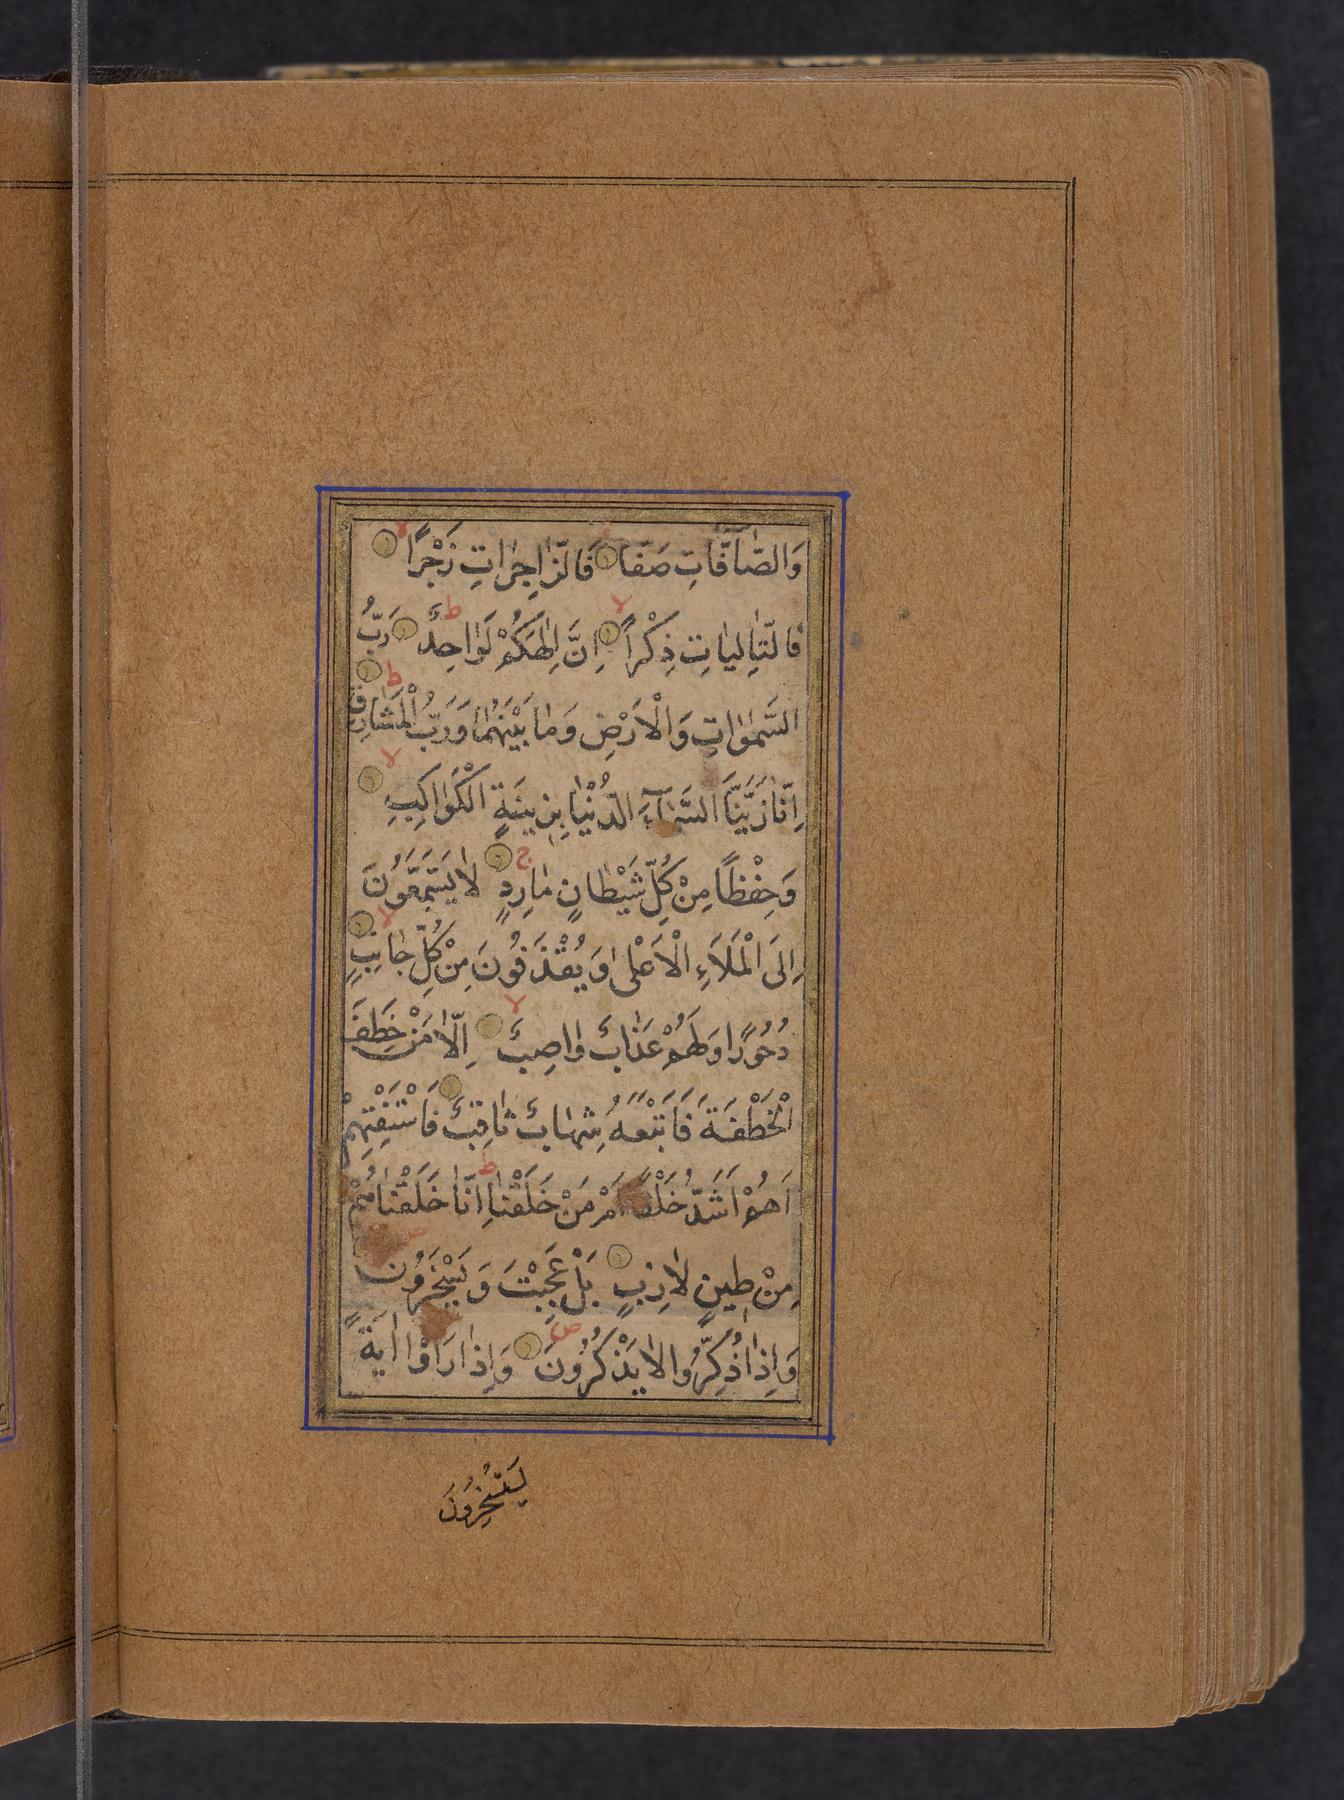 وَالصَّاۤفَّاتِ صَفًّا فَالزَّاجِرَاتِ زَجْرًا
فَالتَّالِيَاتِ ذِكْرًا اِنَّ اِلٰهَكُمْ لَوَاحِدٌ رَبُّ
السَّمٰوَاتِ وَالْاَرْضِ وَمَا بَيْنَهُمَا وَرَبُّ الْمَشَارِقِ
اِنَّا زَيَّنَّا السَّمَآءَ الدُّنْيَا بِزِينَةٍ الْكَوَاكِبِ
وَحِفْظًا مِنْ كُلِّ شَيْطَانٍ مَارِدٍ لَا يَسَّمَّعُونَ
اِلَى الْمَلَاَءِ الْاَعْلٰى وَيُقْذَفُونَ مِنْ كُلِّ جَانِبٍ
دُحُورًا وَلَهُمْ عَذَابٌ وَاصِبٌ اِلَّا مَنْ خَطِفَ
الْخَطْفَةَ فَاَتْبَعَهُ شِهَابٌ ثَاقِبٌ فَاسْتَفْتِهِمْ
اَهُمْ اَشَدُّ خَلْقًا اَمْ مَنْ خَلَقْنَا اِنَّا خَلَقْنَاهُمْ
مِنْ طِينٍ لَازِبٍ بَلْ عَجِبْتَ وَيَسْخَرُونَ
وَاِذَا ذُكِّرُوا لَا يَذْكُرُونَ وَاِذَا رَاَوْا اٰيَةً
يَسْتَسْخِرُونَ